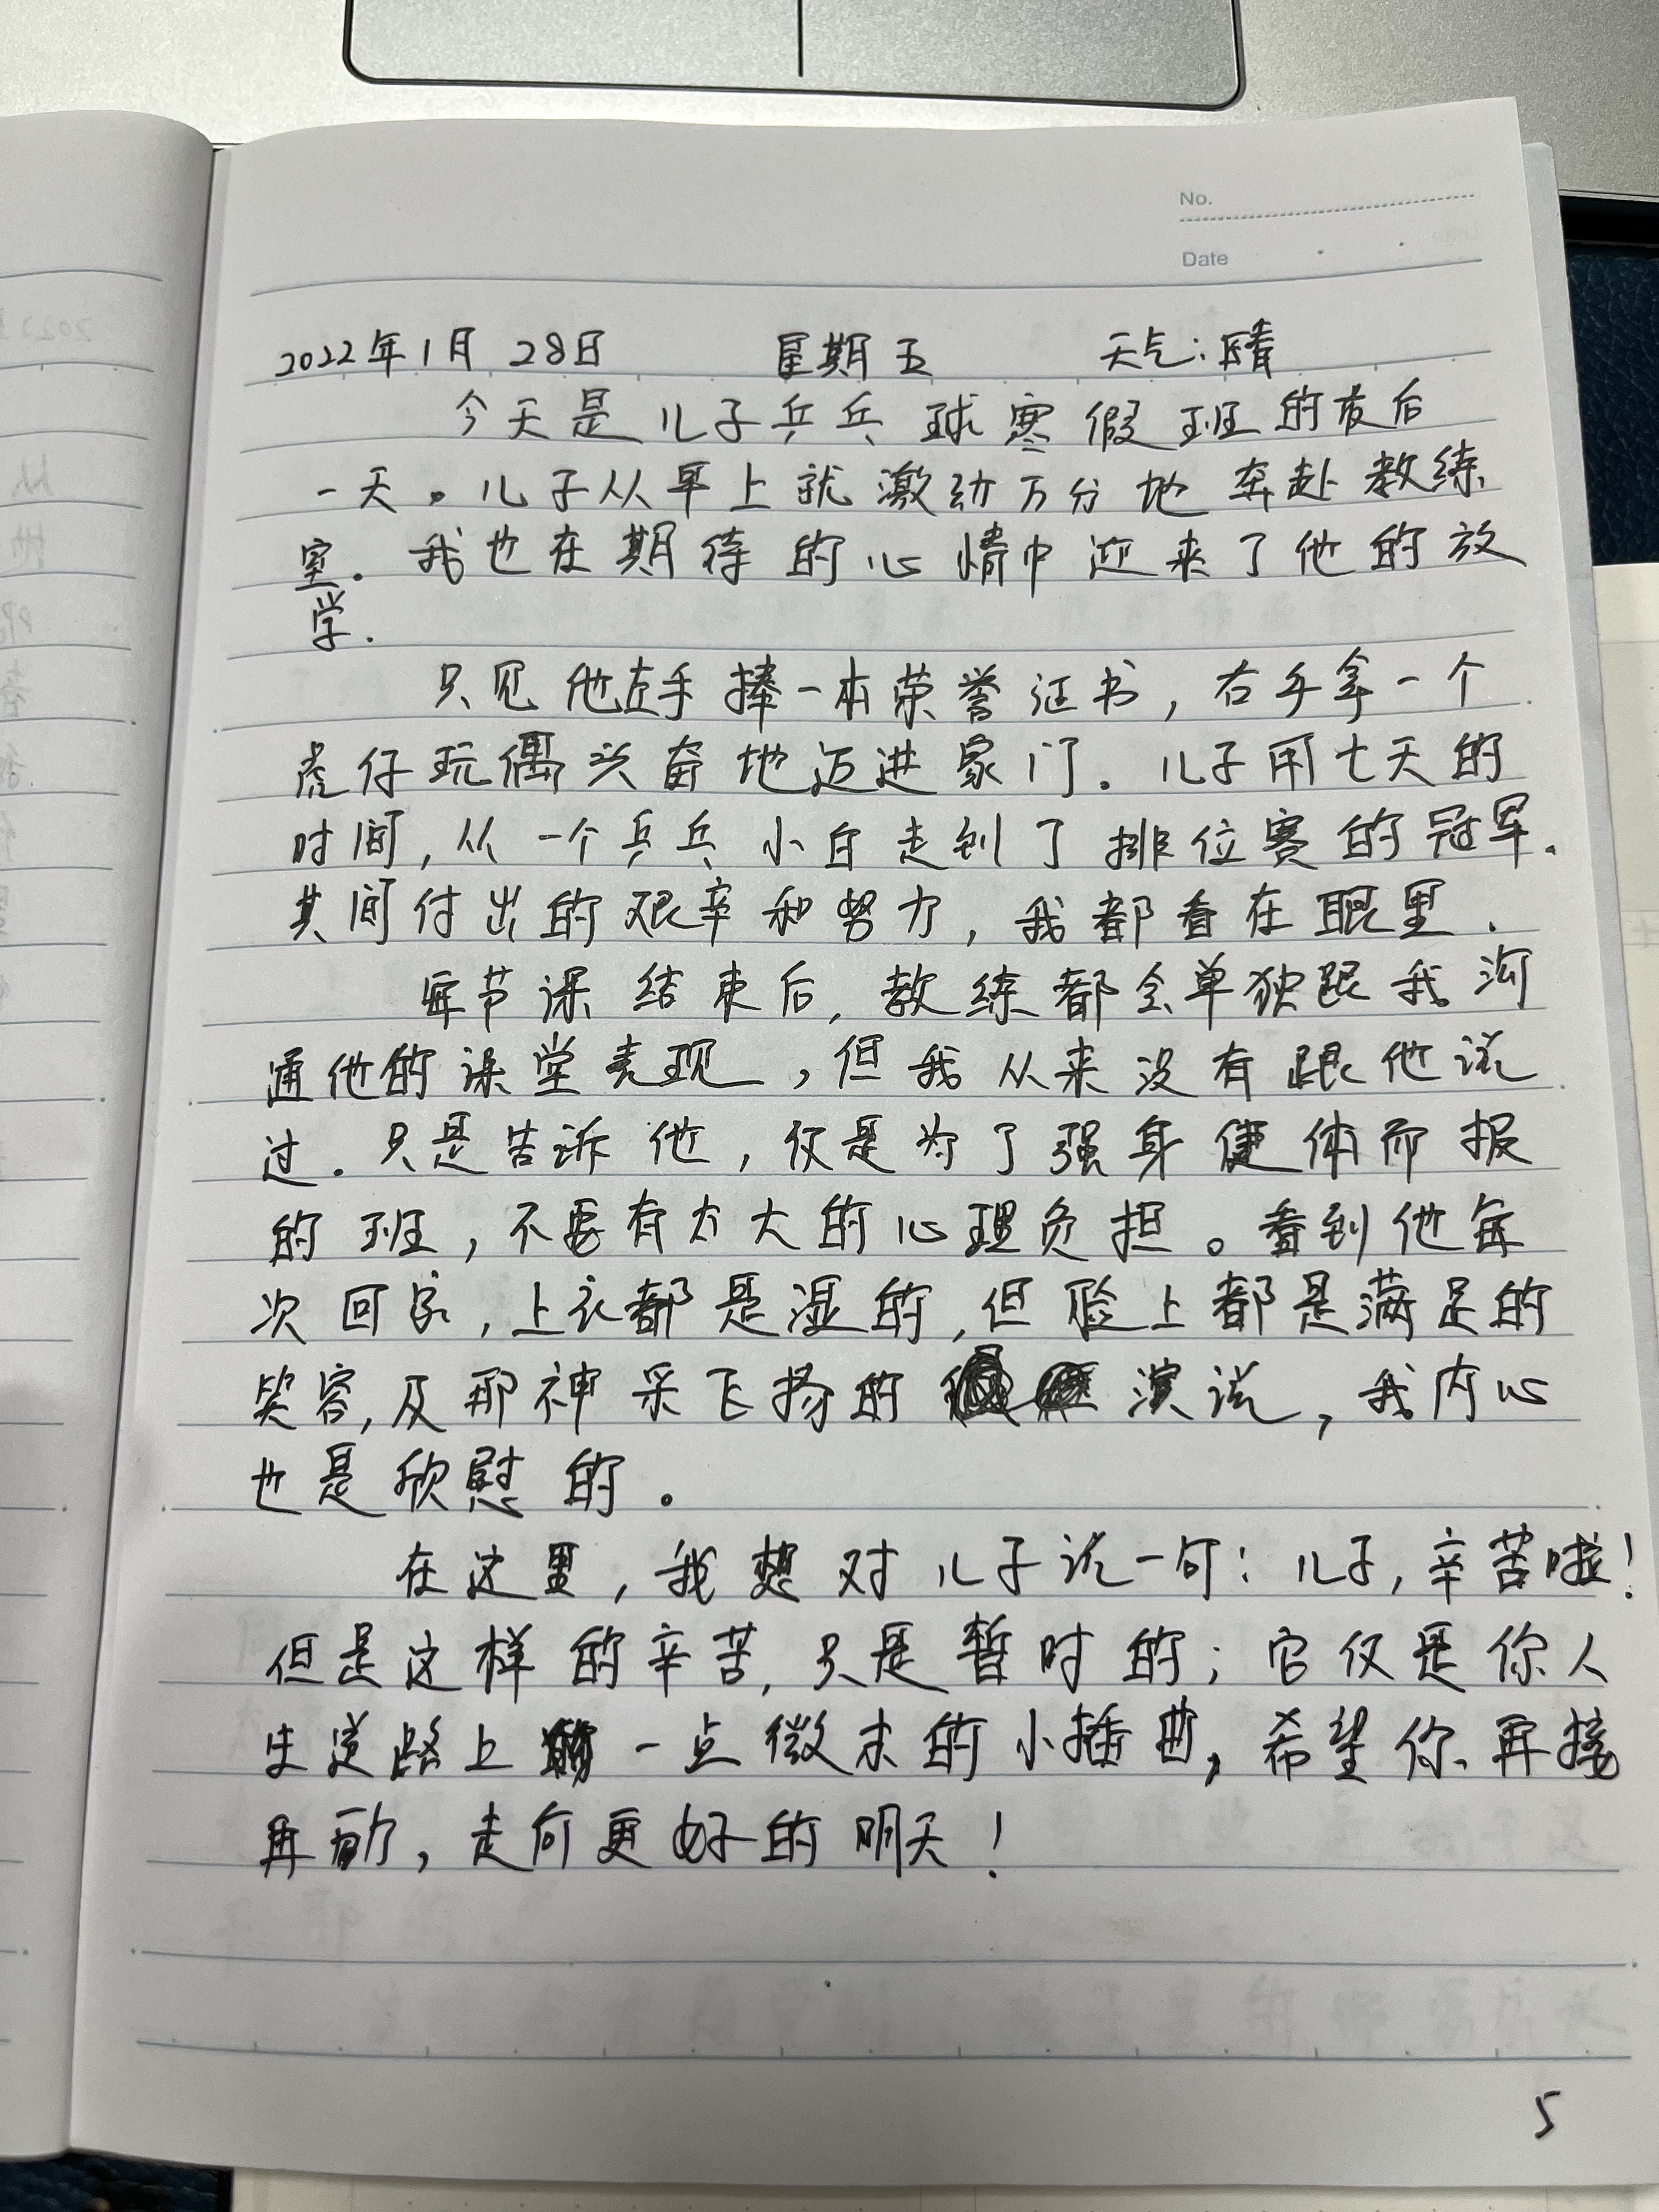 No.
Date
2022年1月28日 星期五 天气:晴
今天是儿子乒乓球寒假班的最后
一天。儿子从早上就激动万分地奔赴教练
室.我也在期待的心情中迎来了他的放
学.
只见他左手捧一本荣誉证书,右手拿一个
虎仔玩偶兴奋地迈进家门.儿子用七天的
时间,从一个乒乓小白走到了排位赛的冠军.
其间付出的艰辛和努力,我都看在眼里.
每节课结束后,教练都会单独跟我沟
通他的课堂表现,但我从来没有跟他说
过.只是告诉他,仅是为了强身健体而报
的班,不要有太大的心理负担。看到他每
次回家,上衣都是湿的,但脸上都是满足的
笑容,及那神采飞扬的演说,我内心
也是欣慰的。
在这里,我想对儿子说一句:儿子,辛苦啦!
但是这样的辛苦,只是暂时的;它仅是你人
生道路上一点微末的小插曲,希望你再接
再励,走向更好的明天!
5